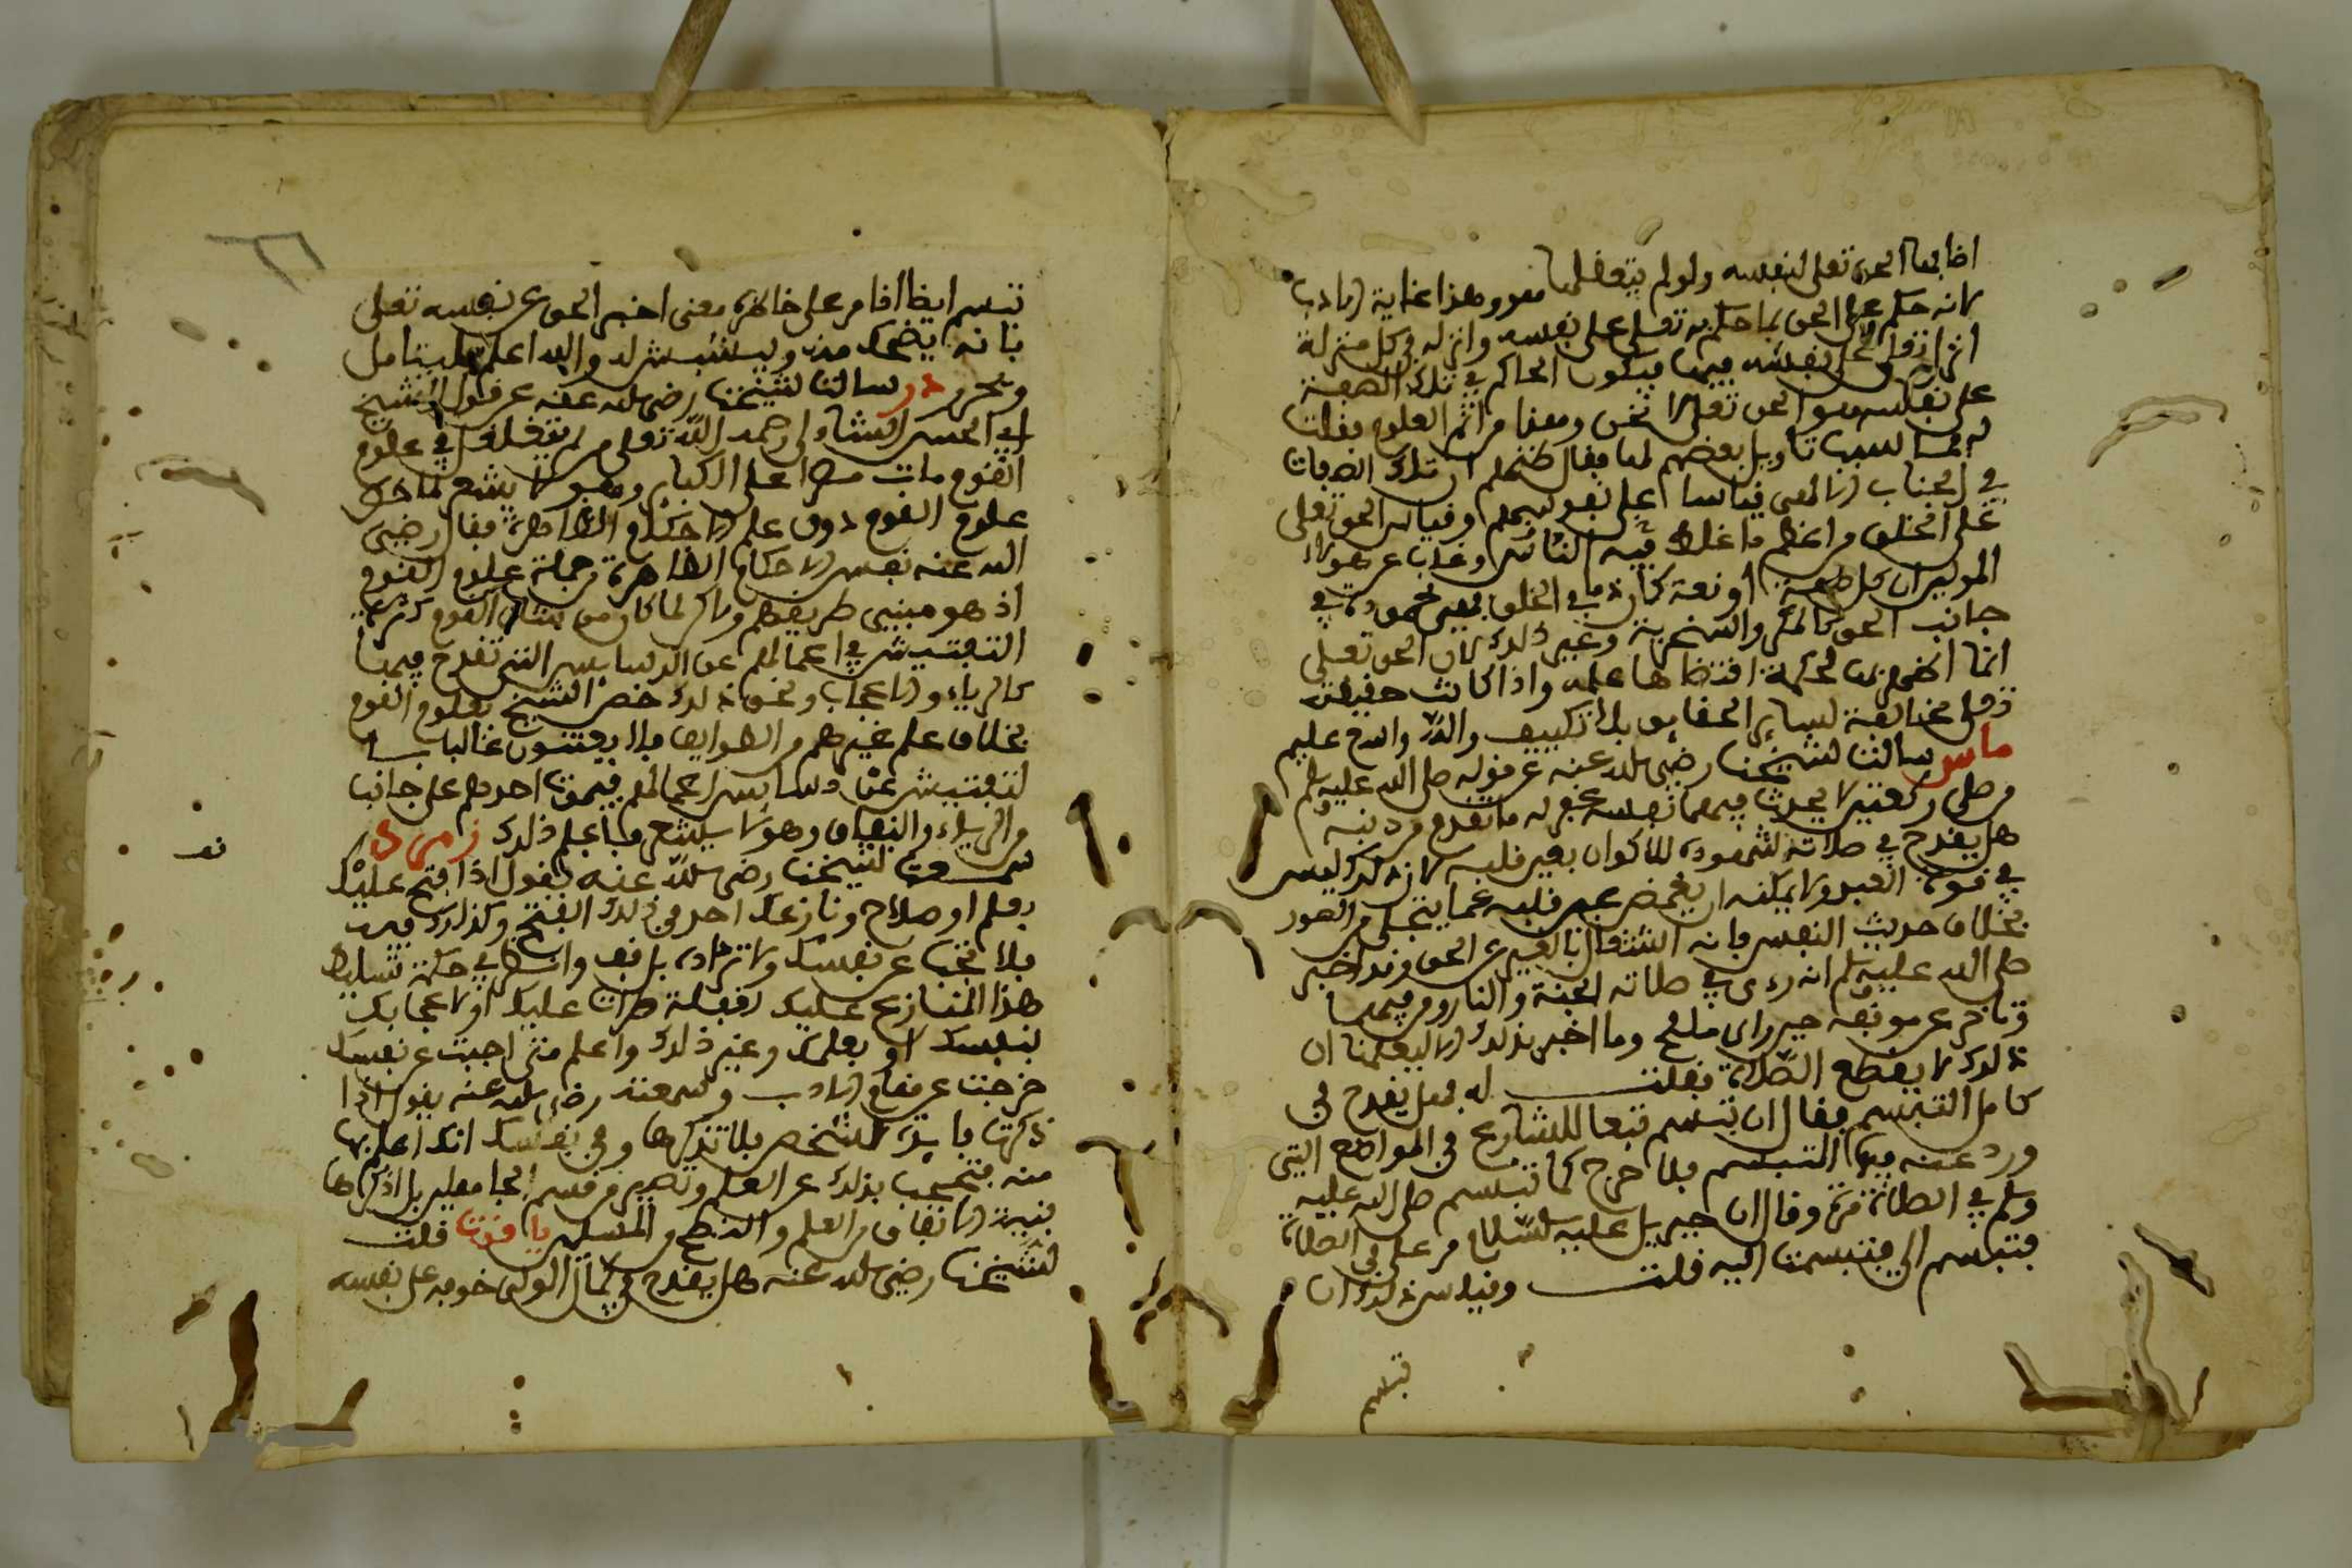 اضابها الحق تعلى لنفسه ولو لم يتعقلها معو وهذا غاية الادب
لانه حكم على الحق بما حكم به تعلى على نفسه وانزله في كل منزلة
انزلها تعلى نفسه فيها فيكون الحاكم في تلك الصفة
على نفسه هو الحق تعلى لا نحن وهذا من اتم العلوم فقلت
له فما سبب تاويل بعضهم لها فقال ظنهم ان تلك الصفات
في الجناب الالهي قياسا على نفوسهم وقياس الحق تعلى
على الخلق من اعظم ما غلط فيه الناس وغاب عن هؤلاء
المولين ان كل صفة او نعت كان ذما في الخلق فهي محمودة في
جانب الحق كالمكر والسخرية وغير ذلك لان الحق تعلى
انما اظهرها لحكمة اقتضاها علمه واذا كانت حقيقته
تعلى مخالفة لساير الحقايق بلا تكييف والله واسع عليم
ماس سالت لشيخنا رضي الله عنه عن قوله صلى الله عليه وسلم
من صلى ركعتين لا يحدث فيهما نفسه غفر له ما تقدم من ذنبه
هل يقدح في صلاته شهوده للاكوان بعين قلبه لان ذلك ليس
في قوة العبد ولا يمكنه ان يغمض عين قلبه عما يتجلى من الصور
بخلاف حديث النفس فانه اشتغال بالغير عن الحق وقد اخبر
صلى الله عليه وسلم انه رءى في صلاته الجنة والنار ومن فيهما
وتاخر عن موقفه حين راى ما لفح وما اخبر بذلك الا ليعلمنا ان
ذلك لا يقطع الصلاة فقلت له فهل يقدح في
كمال التبسم فقال ان تبسم تبعا للشارع في المواضع التي
ورد عنه فيها التبسم فلا حرج كما تبسم صلى الله عليه
وسلم في الصلاة مرة وقال ان جبريل عليه السلام مر علي في الصلاة
فتبسم الي فتبسمت اليه قلت وقياس ذلك ان
تبسم
تبسم ايضا اذا مر على خاطره معنى اخبر الحق عن نفسه تعلى
بانه يضحك منه ويستبشر له والله اعلم فليتامل
ويحرر در سالت لشيخنا رضي الله عنه عن قول الشيخ
ابي الحسن الشاذلي رحمه الله تعلى من لم يتغلغل في علوم
القوم مات مصرا على الكباير وهو لا يشعر لما خص
علوم القوم دون علم الاحكام الظاهرة فقال رضي
الله عنه نفس الاحكام الظاهرة من جملة علوم القوم
اذ هو مبنى طريقهم ولاكن لما كان من شان القوم كثرة
التفتيش في اعمالهم عن الدسايس التي تقدح فيها
كالرياء والاعجاب ونحو ذلك خص الشيخ علوم القوم
بخلاف علم غيرهم من الطوايف فلا يعتنون غالبا
لتفتيش عن دسايس اعمالهم فيموت احدهم على جانب
من الرياء والنفاق وهو لا يشعر فاعلم ذلك زمرد
سمعت لشيخنا رضي الله عنه يقول اذا فتح عليك
بعلم او صلاح ونازعك احد في ذلك الفتح وكذلك فيه
فلا تجب عن نفسك ولا ترده بل قف وانظر في حكمة تسليط
هذا المنازع عليك لغفلة طرات عليك او لاعجابك
بنفسك او بعلمك وغير ذلك واعلم متى اجبت عن نفسك
خرجت عن مقام الادب وسمعته رضي الله عنه يقول اذا
ذكرت فايدة لشخص فلا تذكرها وفي نفسك انك اعلم بها
منه فتحجب بذلك عن العلم وتصير من قسم الجاهلين بل اذكرها
بنية الانفاق من العلم والنصح للمسلمين ياقوت قلت
لشيخنا رضي الله عنه هل يقدح في كمال الولي خوفه على نفسه